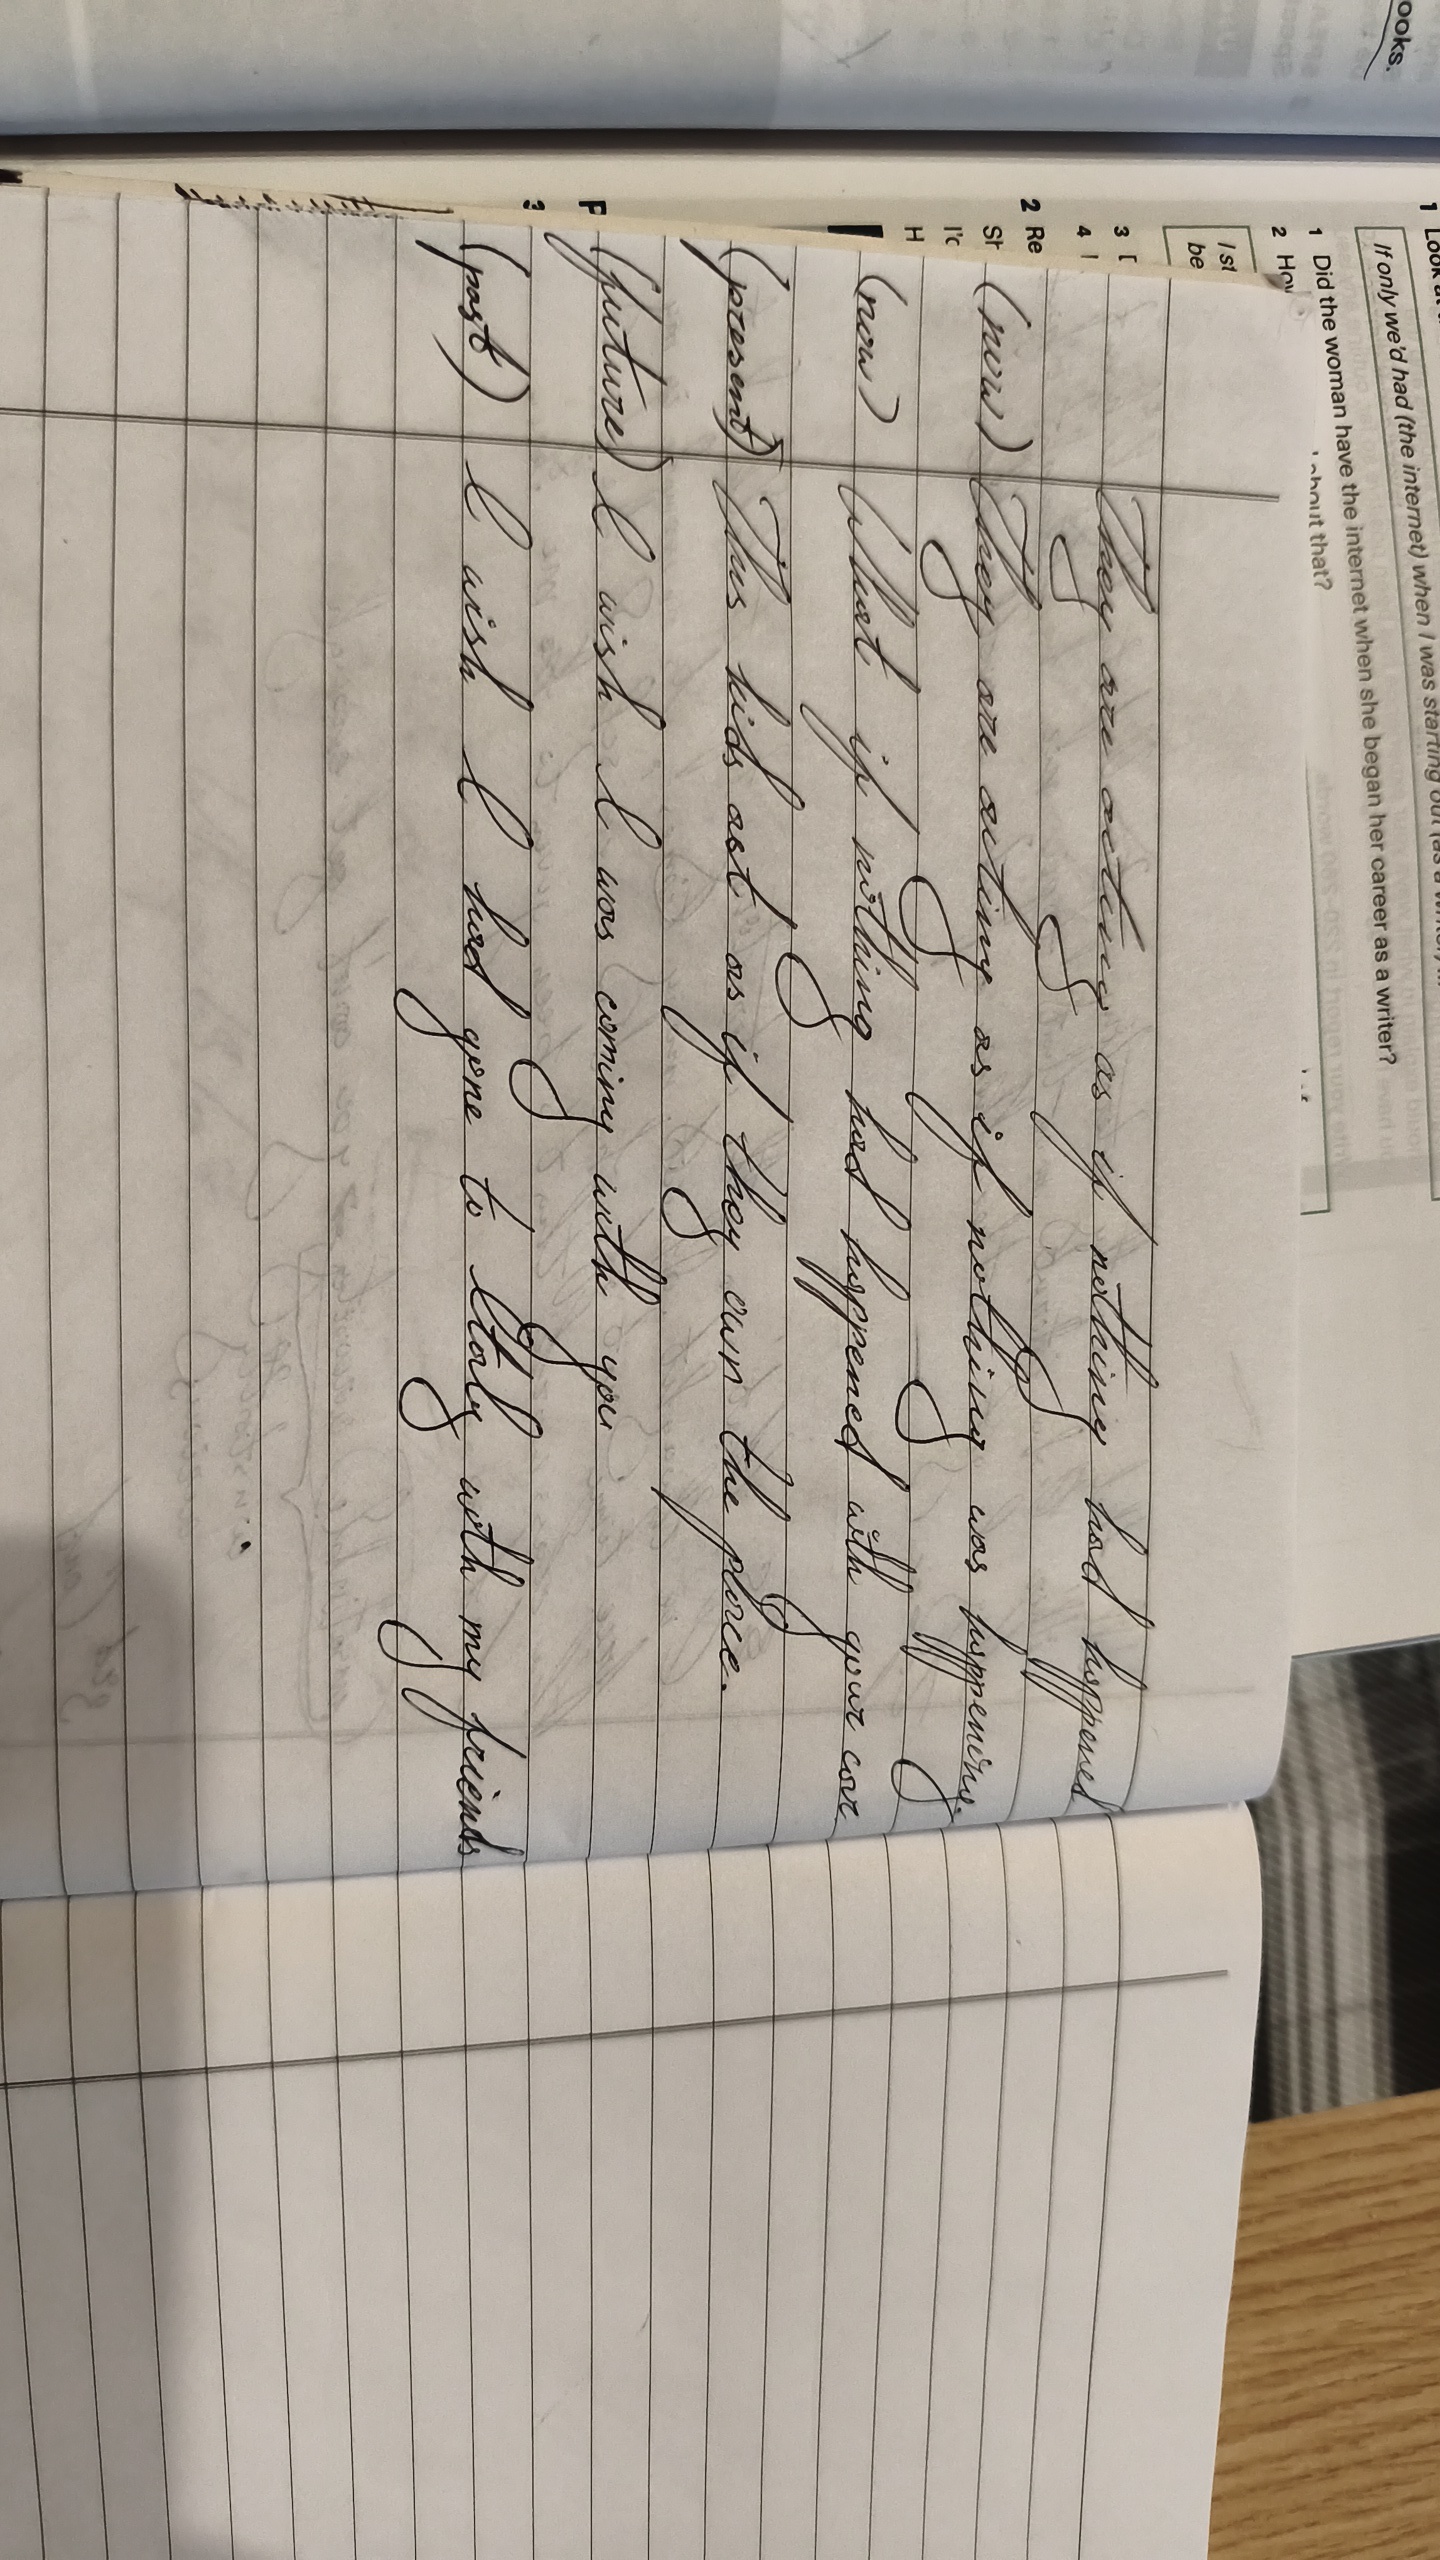 ooks.
1 Look at
If only we'd had (the internet) when I was starting out (as a writer)
1 Did the woman have the internet when she began her career as a writer?
2 How
about that?
3
4
I st
be
2 Re
Sh
I'd
H
They are acting as if nothing had happened
(now) They are acting as if nothing was happening.
(now) What if nothing had happened with your car
(present) This kids act as if they own the place.
(future) I wish I was coming with you
(past) I wish I had gone to Italy with my friends